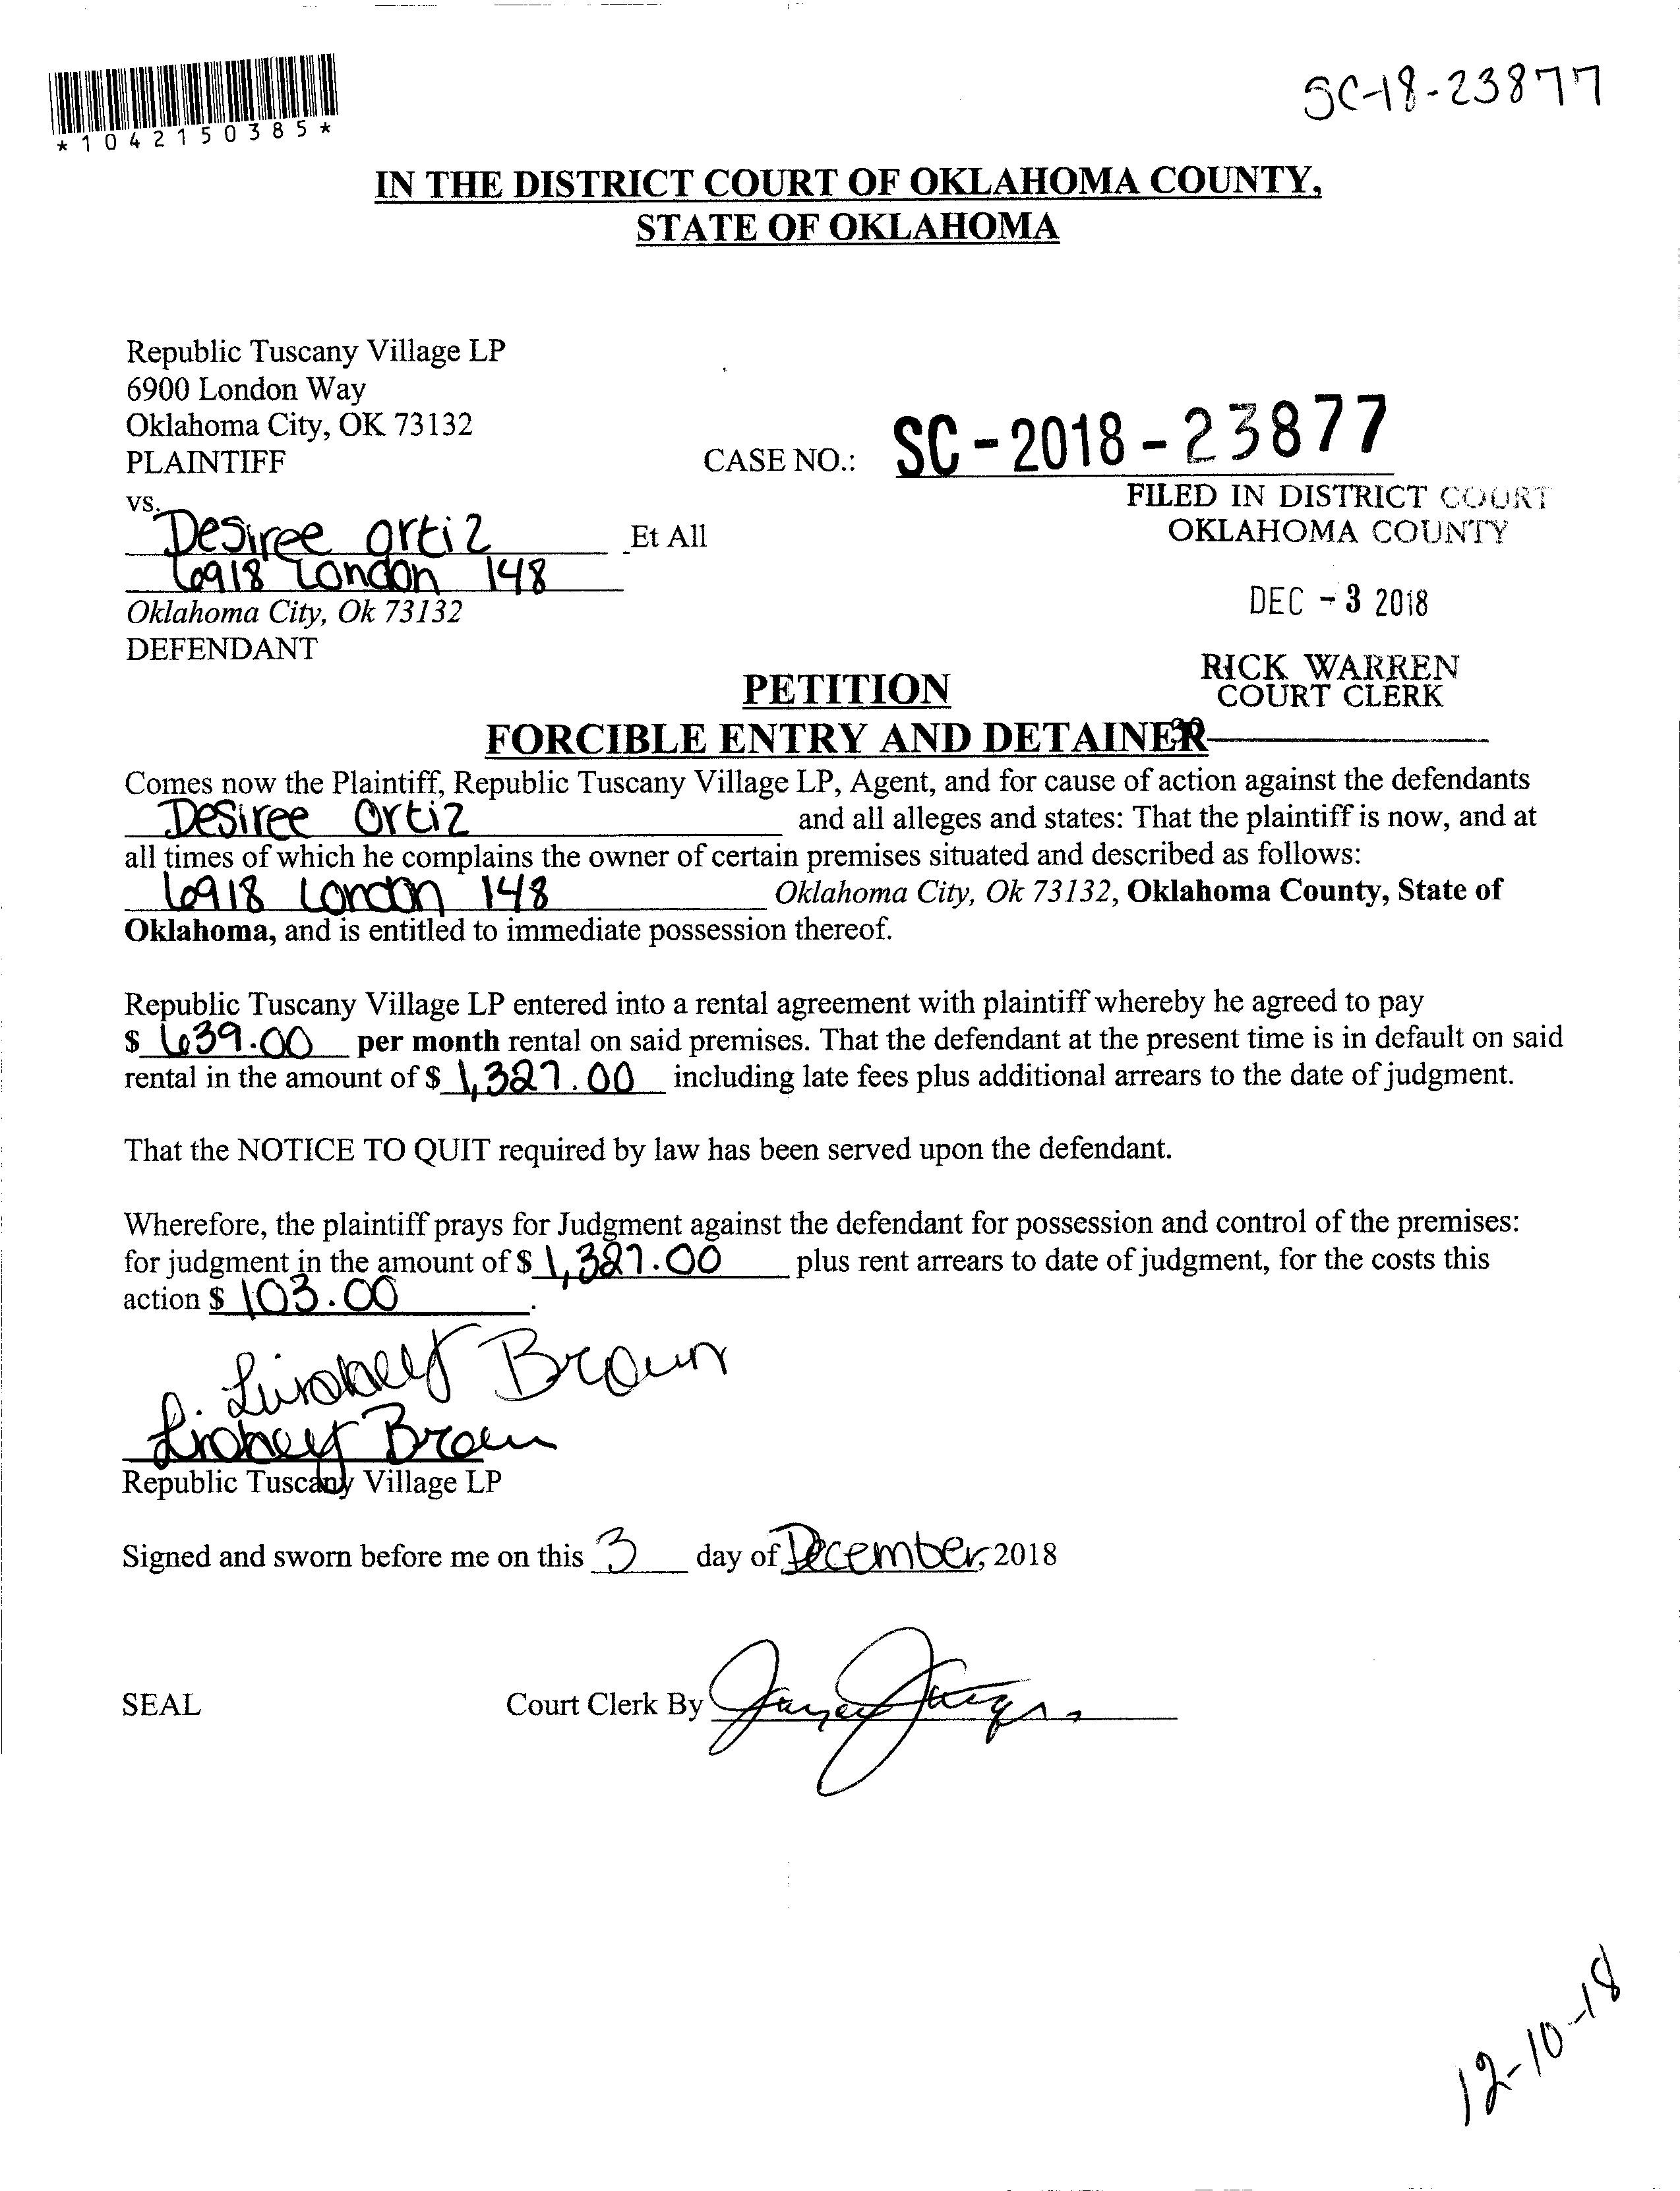 *1042150385*
SC-18-23877
IN THE DISTRICT COURT OF OKLAHOMA COUNTY,
STATE OF OKLAHOMA
Republic Tuscany Village LP
6900 London Way
Oklahoma City, OK 73132
PLAINTIFF
CASE NO.: SC-2018-23877
vs.
FILED IN DISTRICT COURT
OKLAHOMA COUNTY
Desiree Ortiz Et All
6918 London 148
Oklahoma City, Ok 73132
DEC - 3 2018
DEFENDANT
RICK WARREN
COURT CLERK
PETITION
FORCIBLE ENTRY AND DETAINER
Comes now the Plaintiff, Republic Tuscany Village LP, Agent, and for cause of action against the defendants
Desiree Ortiz and all alleges and states: That the plaintiff is now, and at
all times of which he complains the owner of certain premises situated and described as follows:
6918 London 148 Oklahoma City, Ok 73132, Oklahoma County, State of
Oklahoma, and is entitled to immediate possession thereof.
Republic Tuscany Village LP entered into a rental agreement with plaintiff whereby he agreed to pay
$ 639.00 per month rental on said premises. That the defendant at the present time is in default on said
rental in the amount of $ 1,327.00 including late fees plus additional arrears to the date of judgment.
That the NOTICE TO QUIT required by law has been served upon the defendant.
Wherefore, the plaintiff prays for Judgment against the defendant for possession and control of the premises:
for judgment in the amount of $ 1,327.00 plus rent arrears to date of judgment, for the costs this
action $ 103.00.
Lindsey Brown
Lindsey Brown
Republic Tuscany Village LP
Signed and sworn before me on this 3 day of December, 2018
SEAL
Court Clerk By
12-10-18